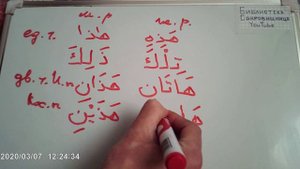 м.р ж.р
Библиотека
Сокровищница
YouTube
ед.ч. هَذَا هَذِهِ
ذَلِكَ تِلْكَ
дв.ч. И.п هَذَانِ هَاتَانِ
هَذَيْنِ هَا
2020/03/07 12:24:34